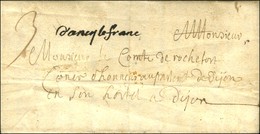 d'ancy le franc
A Monsieur
3 Monsieur le Comte de rochefort
Coner d'honneur au parlet de Dijon
en son hostel a Dijon